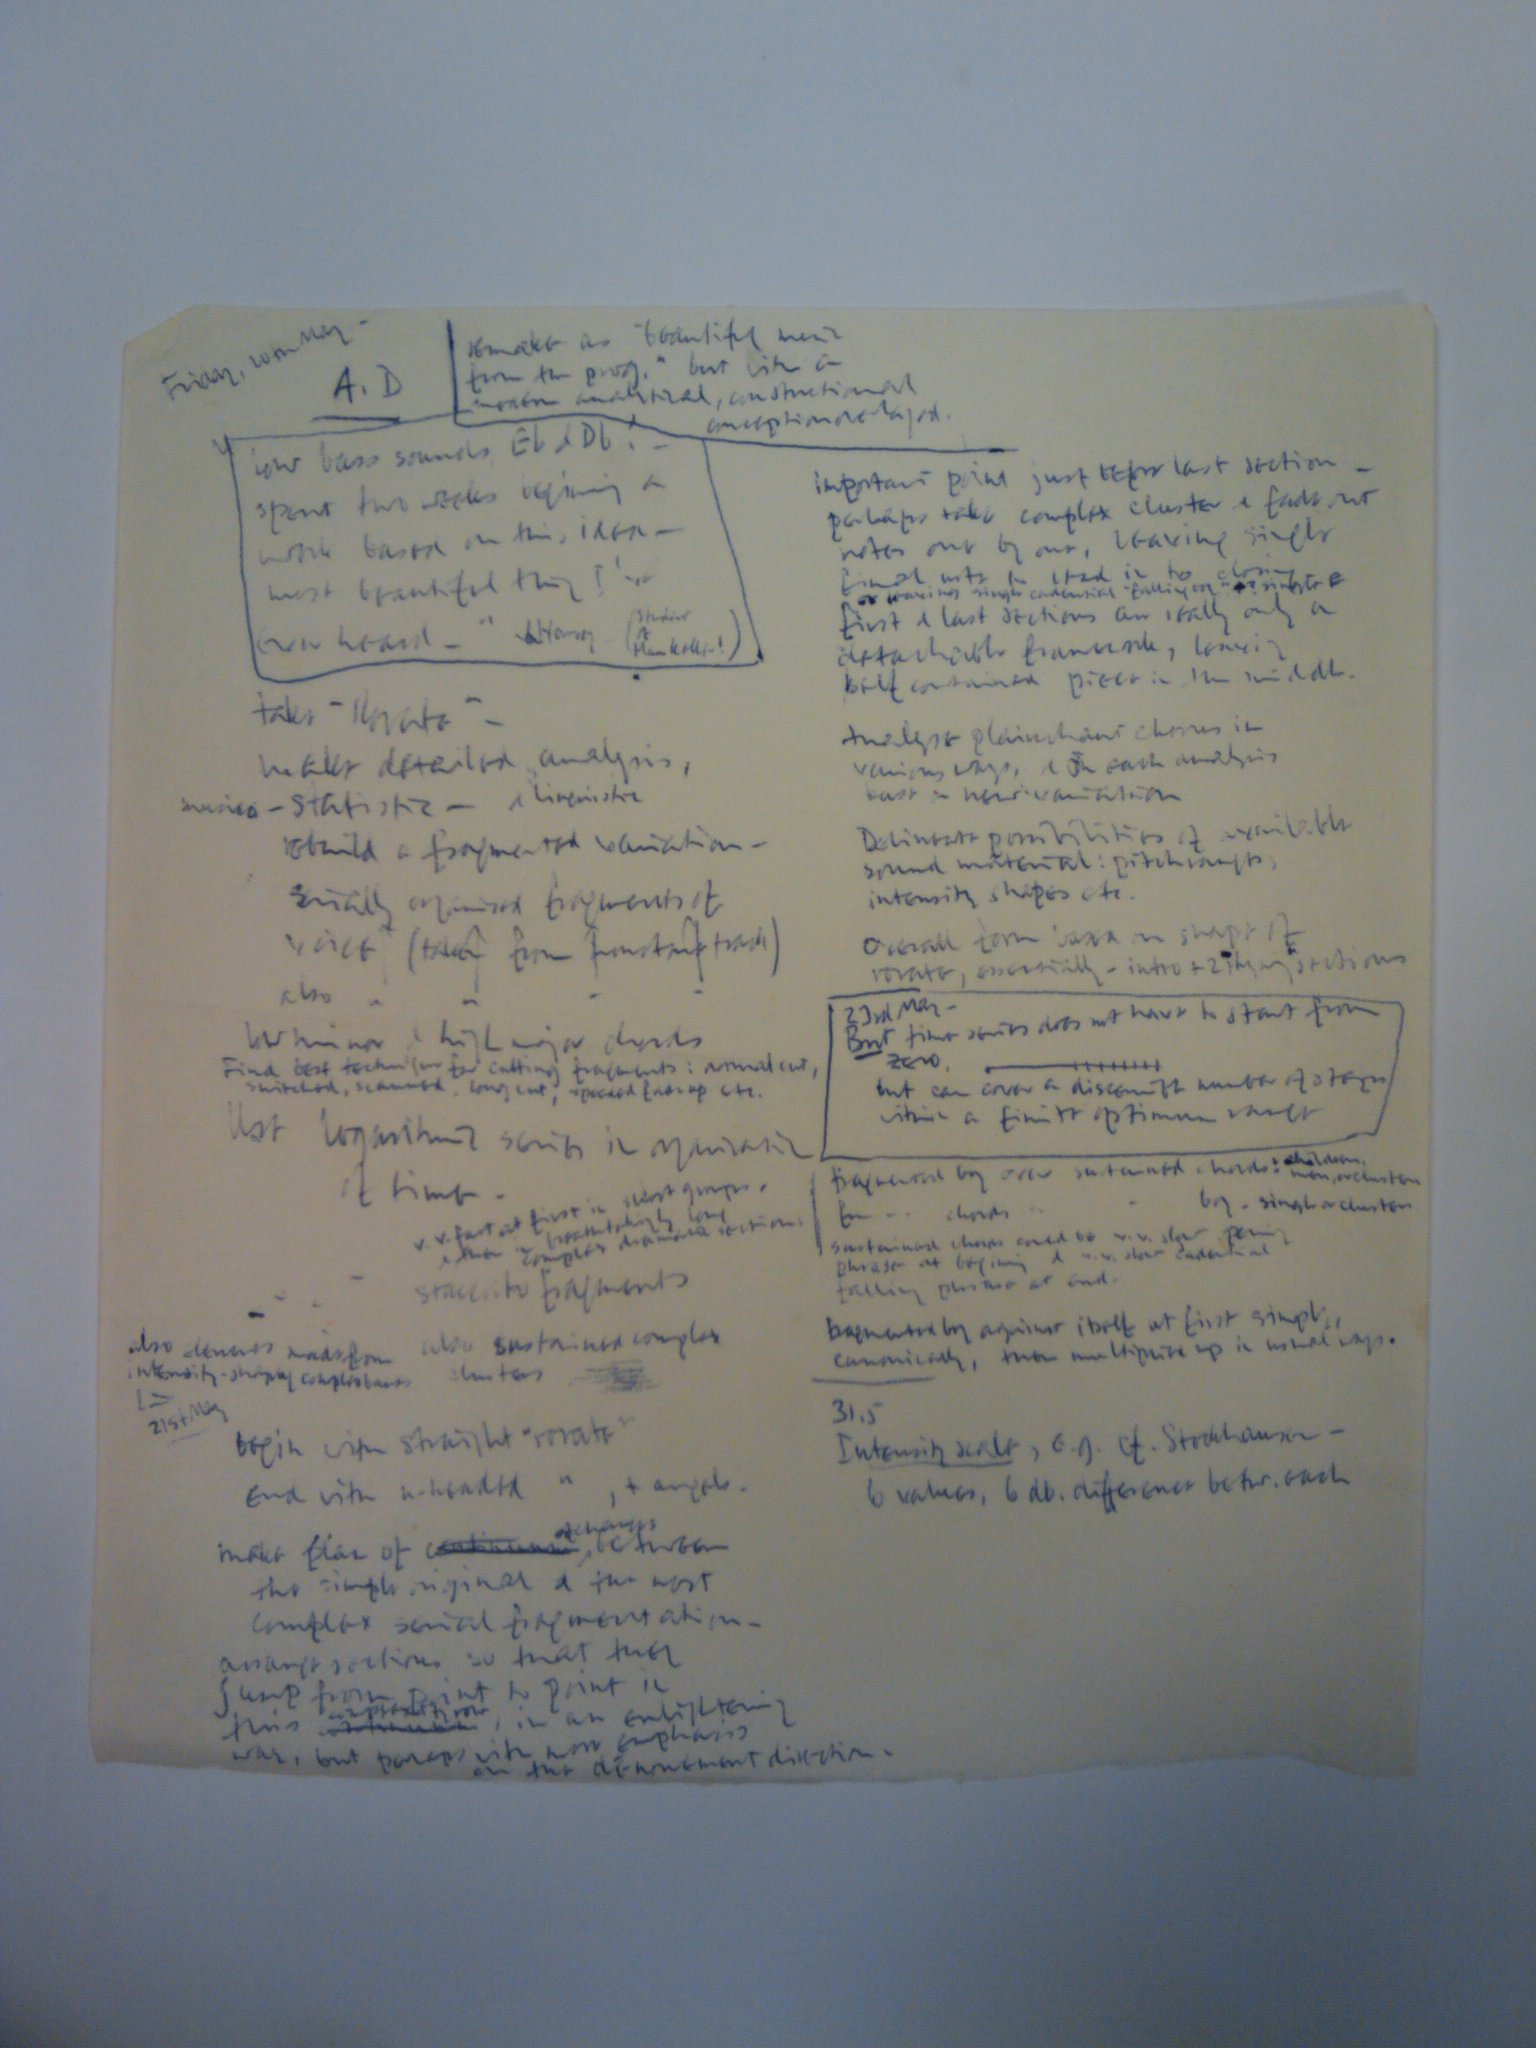 Friday, 20th May -
A.D
remake as "beautiful music
from the prog." but with a
modern analytical, constructional
conception overlayed.
low bass sounds Eb & Db! -
spent two weeks beginning a
work based on this idea -
most beautiful thing I've
ever heard - " Harvey (Student of
take "Rorate" -
make detailed analysis,
musico - statistic - & linguistic
rebuild a fragmented variation -
serially organised fragments of
voice (taken from constant track)
also " " " "
low minor & high major chords
Find best technique for cutting fragments: normal cut,
switched, scanned, long cut, speeded up etc.
Use logarithmic series in organisation
of time -
v.v. fast at first in short groups,
& then long
complex dramatic sections.
staccato fragments
also sustained complex
clusters
also elements made from
intensity-shaping
21st May
begin with straight "rorate"
End with " , + angels.
make plan of changes, between
the simple original & the most
complex serial fragmentation -
arrange sections so that they
jump from point to point in
this , in an enlightening
way, but perhaps with more emphasis
on the denouement direction.
important point just before last section -
perhaps take complex cluster & fade out
notes one by one, leaving single
final note to lead in to closing
or leaving single cadential "falling
first & last sections are really only a
detachable framework, leaving
self contained piece in the middle.
Analyse plainchant chorus in
various ways, & on each analysis
base a new variation
Delineate possibilities of available
sound material: pitch ranges,
intensity shapes etc.
Overall form based on shape of
rorate, essentially - intro + 2 sections
23rd May -
But time series does not have to start from
zero.
but can cover a discrete number of steps
within a finite optimum range
fragmented boy over sustained chords: children,
men, or clusters
" " chords " boy - single or cluster
sustained chords could be v.v. slow opening
phrase at beginning & v.v. slow cadential
falling phrase at end.
fragmented boy against itself at first simply,
canonically, then multiplied up in usual ways.
31.5
Intensity scale, e.g. cf. Stockhausen -
6 values, 6 db. difference betw. each